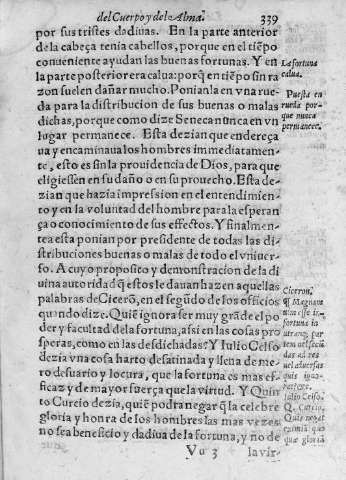 del Cuerpo y del Alma. 339
por sus tristes dadiuas. En la parte anterior
de la cabeça tenia cabellos, porque en el tiẽpo
conueniente ayudan las buenas fortunas. Y en
la parte posterior era calua: porq̃ en tiẽpo sin ra
zon suelen dañar mucho. Ponian la en vna rue
da para la distribucion de sus buenas o malas
dichas, porque como dize Seneca nũnca en vn
lugar permanece. Esta dezian que endereça
ua y encaminaua los hombres immediatamen-
te, esto es sin la prouidencia de Dios, para que
eligiessen en su daño o en su prouecho. Esta de-
zian que hazia impression en el entendimien-
to y en la voluntad del hombre para la esperan
ça o conocimiento de sus effectos. Y finalmen-
te a esta ponian por presidente de todas las di-
stribuciones buenas o malas de todo el vniuer-
so. A cuyo proposito y demonstracion de la di
uina autoridad q̃ estos le dauan hazen aquellas
palabras de Cicerõ, en el segũdo de los officios
quando dize. Quiẽ ignora ser muy grãde el po
der y facultad de la fortuna, assi en las cosas pro
speras, como en las desdichadas? Y Iulio Celso
dezia vna cosa harto desatinada y llena de me-
ro desuario y locura, que la fortuna es mas ef-
ficaz y de mayor fuerça que la virtud. Y Quin
to Curcio dezia, quiẽ podra negar q̃ la celebre
gloria y honra de los hombres las mas vezes
no sea beneficio y dadiua de la fortuna, y no de
Vu 3 la vir-
La fortuna
calua.
Puesta en
rueda por-
que nunca
permanece.
Ciceron.
¶ Magnam
esse in
fortuna in
utramq; par
tem
ad res
uel aduersas
quis igno-
Iulio Celso.
Q. Curcio.
quæ gloriã